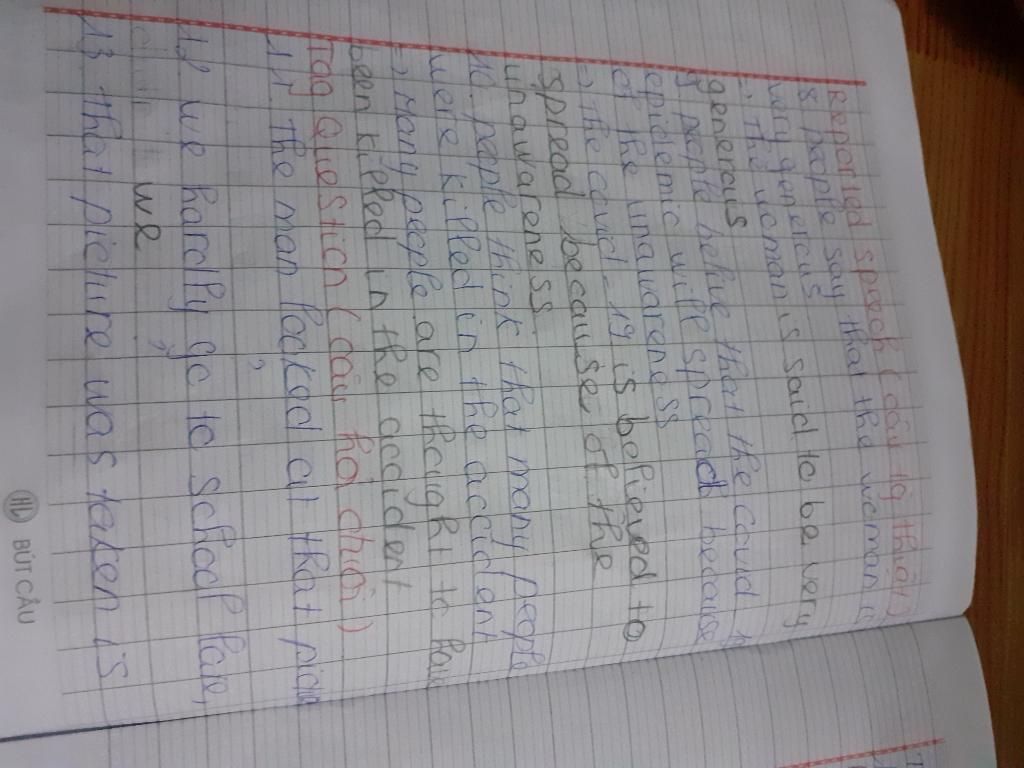 Reported speech (câu tường thuật)
8 people say that the woman is
very generous
: The woman is said to be very
generous
9 people belive that the covid
epidemic will spread because
of the unawareness
=) The covid-19 is believed to
spread because of the
unawareness
10. people think that many people
were killed in the accident
=) Many people are thought to have
been killed in the accident
Tag Question (câu hỏi đuôi)
11 the man looked at that
12/ we hardly go to school
we
13 that picture was taken is
HL BÚT CÂU